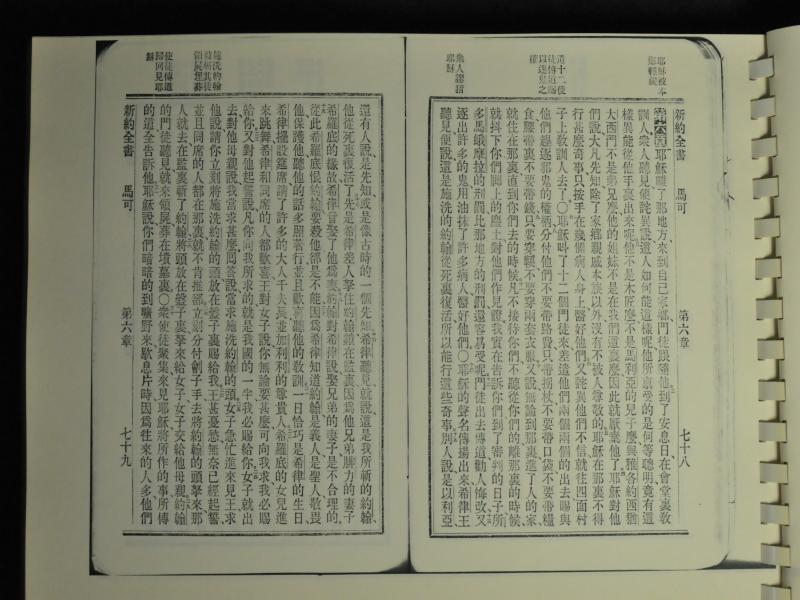 耶穌被本
鄉輕藐
遣十二使
徒傳道賜
以逐鬼之
權
衆人謬語
耶穌
新約全書 馬可 第六章 七十八
第六章耶穌離了那地方來到自己家鄉門徒跟隨他到了安息日在會堂裏敎
訓人衆人聽見便詫異說這人如何能這樣呢他所禀受的是何等聰明竟有這
樣異能從他手裏出來呢他不是木匠麽不是馬利亞的兒子麽與雅各約西猶
大西門不是弟兄麽他的姐妹不是在我們這裏麽因此就厭棄他了耶穌對他
們說大凡先知除了家鄉親戚本族以外沒有不被人尊敬的耶穌在那裏不得
行甚麽奇事只按手在幾個病人身上醫好他們又詫異他們不信就往四面村
子上敎訓人去了〇耶穌呌了十二個門徒來差遣他們兩個兩個的出去賜與
他們趕逐邪鬼的權柄分付他們不要帶路費只帶拐杖不要帶口袋不要帶糧
食腰帶裏不要帶錢只要穿鞵不要穿兩套衣服又說無論到那裏進了人的家
就住在那裏直到你們去的時候凡不接待你們不聽從你們的離那裏的時候
就抖下你們脚上的塵土對他們作見證我實在告訴你們到了審判的日子所
多馬蛾摩拉的刑罰比那地方的刑罰還容易受呢門徒出去傳道勸人悔改又
逐出許多的鬼用油抹了許多病人醫好他們〇耶穌的聲名傳揚出來希律王
聽見便說這是施洗的約翰從死裏復活所以能行這些奇事别人說是以利亞
施洗約翰
被斬其徒
領屍埋葬
使徒傳道
歸回見耶
穌
還有人說是先知或是像古時的一個先知希律聽見就說這是我所斬的約翰
他從死裏復活了先是希律差人拏住約翰鎖在監裏因爲他兄弟腓力的妻子
希羅底的緣故希律曾娶了他爲妻約翰對希律說娶兄弟的妻子是不合理的
從此希羅底恨約翰要殺他卻是不能因爲希律知道約翰是義人是聖人敬畏
他保護他聽他的話多照著行並且歡喜聽他的敎訓一日恰巧是希律的生日
希律擺設筵席請了許多的大人千夫長並加利利的尊貴人希羅底的女兒進
來跳舞希律和同席的人都歡喜王對女子說你無論要甚麽可向我求我必賜
給你又對他起誓說凡你向我所求的就是我國的一半我必賜給你女子就出
去對他母親說我當求甚麽囘答說當求施洗約翰的頭女子急忙進來見王求
他說請你立刻將施洗約翰的頭放在盤子裏賜給我王甚憂愁無奈已經起誓
並且同席的人都在那裏就不肯推辭立刻分付劊子手去將約翰的頭拏來那
人就去在監裏斬了約翰將頭放在盤子裏拏來給女子女子交給他母親約翰
的門徒聽見就來領屍葬在墳墓裏〇衆使徒聚集來見耶穌將所作的事所傳
的道全告訴他耶穌說你們暗暗的到曠野來歇息片時因爲往來的人多他們
新約全書 馬可 第六章 七十九